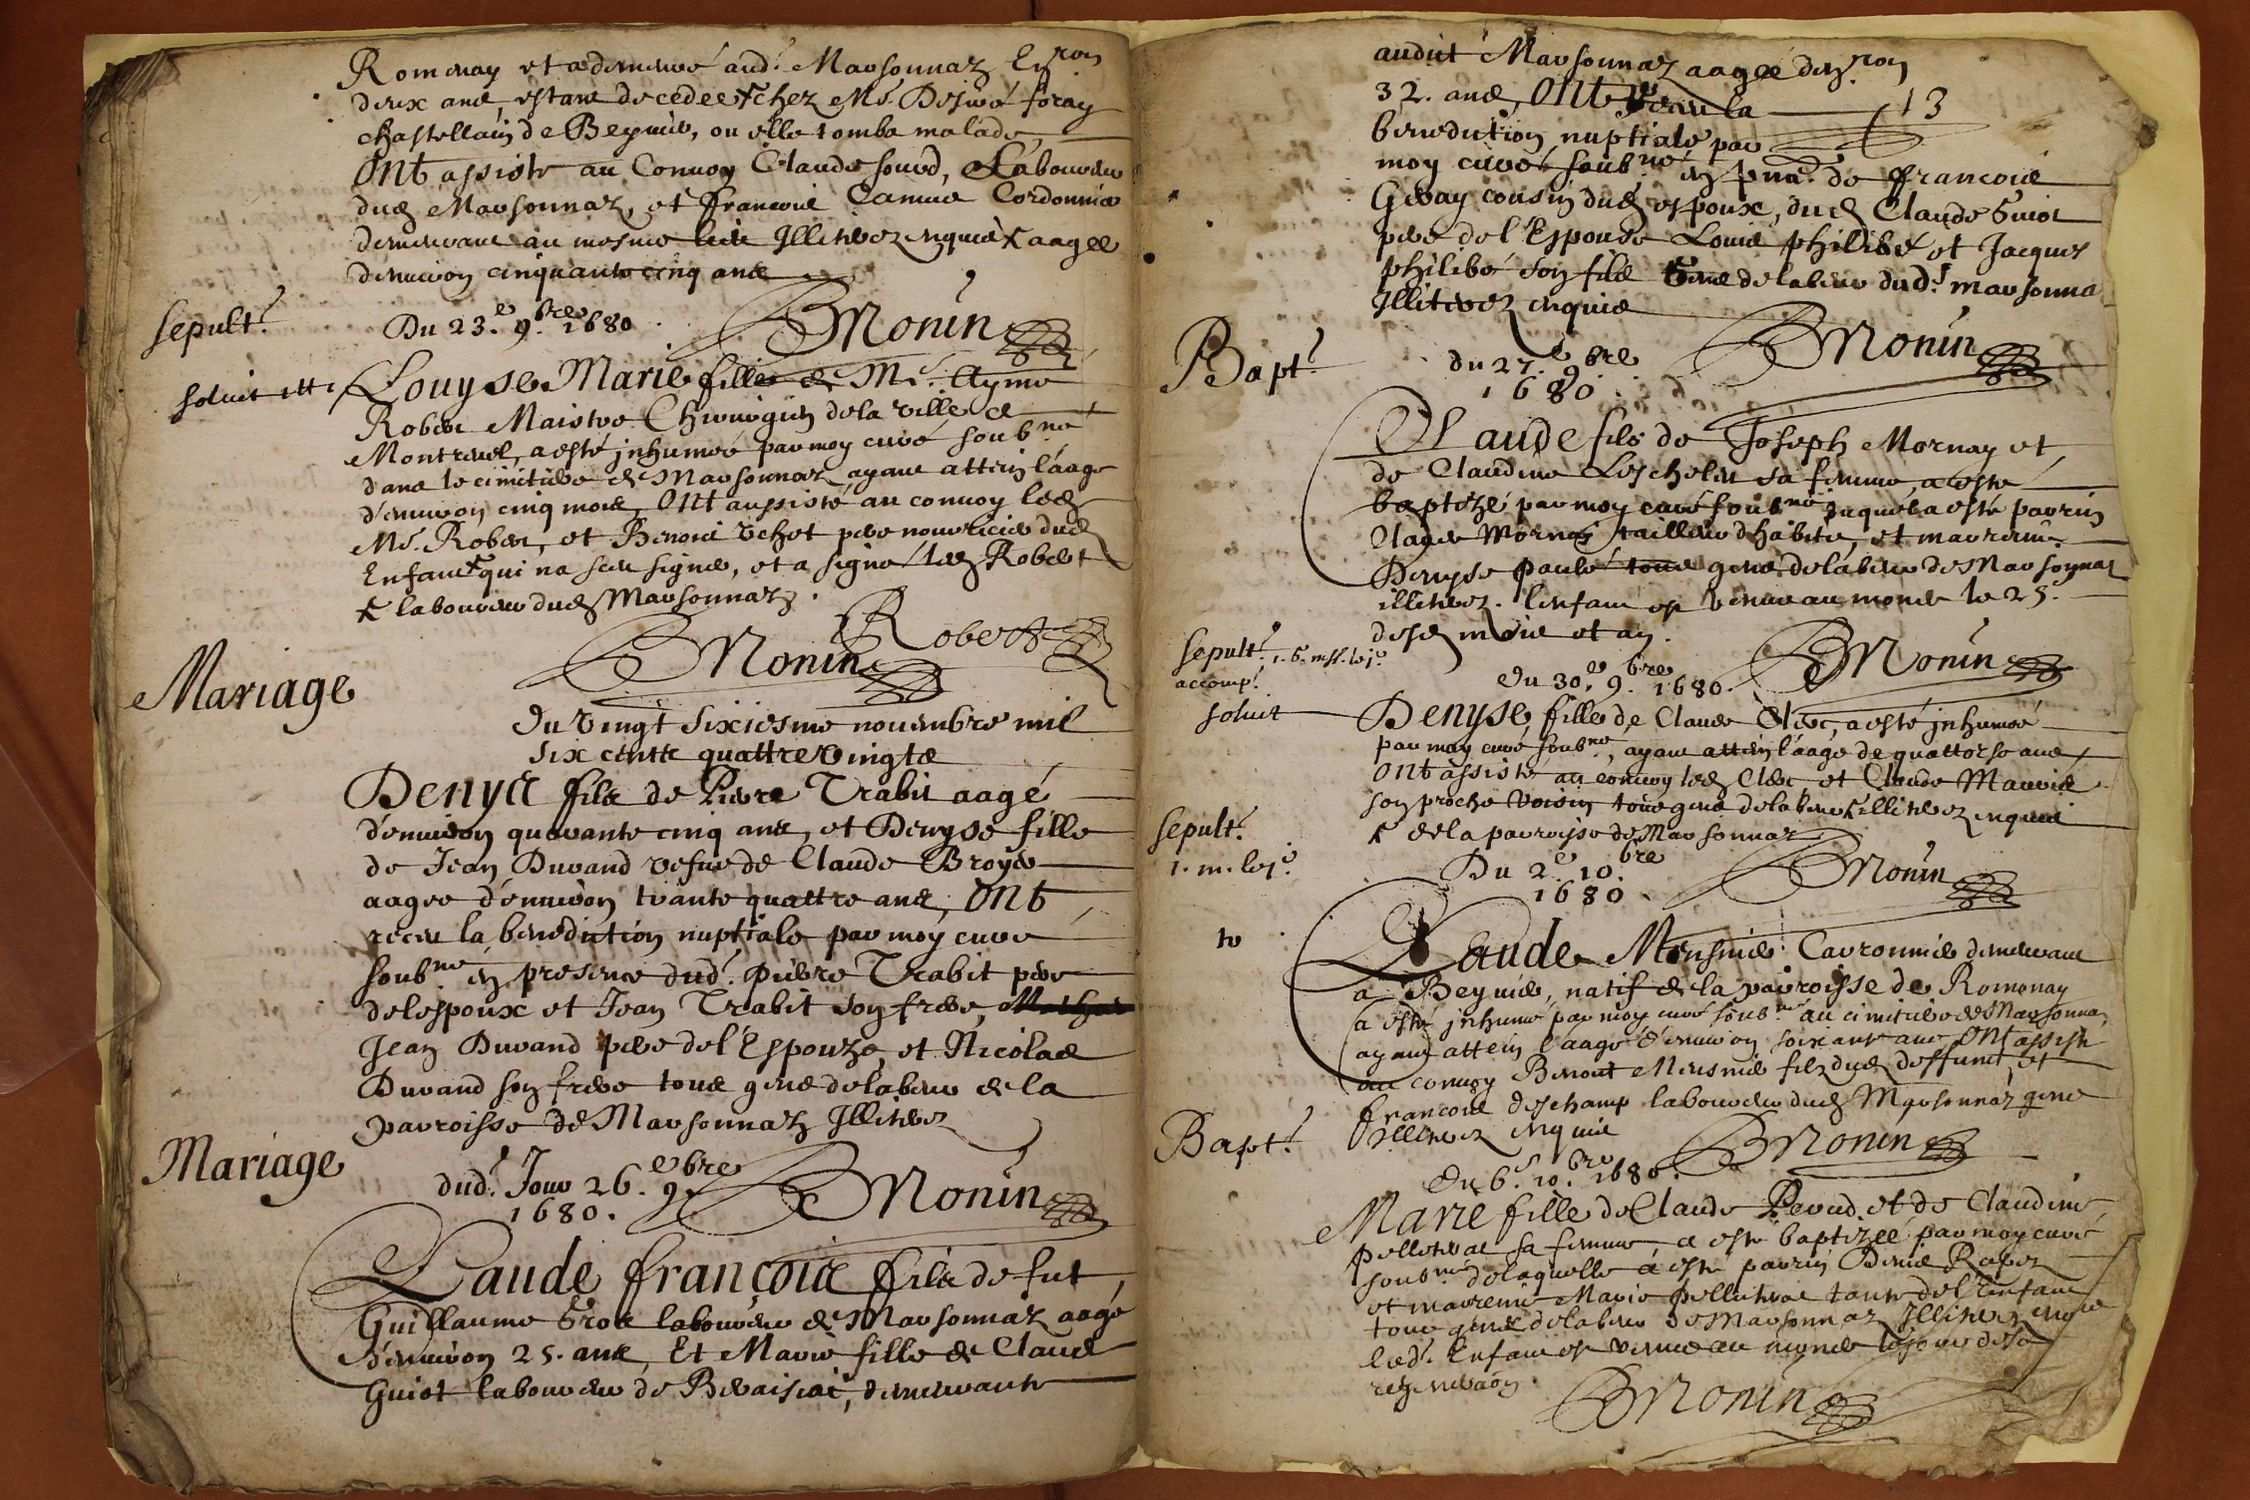 Romenay et a demeuré aud.t Marsonnaz En.ron
deux ans, estant decedee chez M.e Desiré foray
chastellain de Beynier, ou elle tomba malade,
ONt assisté au Convoy Claude Laboureur
dud Marsonnaz, et francois Camus Cordonnier
demeurant au mesme lieu Illiterez enquis aagee
denviron cinquante cinq ans
Sepult.e
Du 23.e 9.bre 1680
BMonin
soluit
Louyse Marie fille de M.e Ayme
Robert Maistre Chirurgien de la ville de
Montrevel, a esté inhumée par moy curé soub.né
dans le cimitiere de Marsonnaz, ayant attein l'aage
d'environ cinq mois, ONt aussisté au convoy led
M.e Robert, et Benoit Vehet pere nourricier dud
Enfant qui na sceu signer, et a signé led Robert
laboureur dud Marsonnaz.
Robert
BMonin
Mariage
du vingt sixiesme novembre mil
six cents quattrevingts
Denys fils de Pierre Trabit aagé
d'environ quarante cinq ans, et Denyse fille
de Jean Durand vefve de Claude Broyer
aagee d'environ trante quattre ans, ONt
receu la benediction nuptiale par moy curé
soub.né en presence dud.t pierre Trabit pere
de lespoux et Jean Trabit son frere,
Jean Durand pere de l'Espouze, et Nicolas
Durand son frere tous gens de labeur de la
parroisse de Marsonnaz Illiterez
Mariage
dud.t Jour 26.e 9.bre
1680.
BMonin
Claude françois fils de fut
Guillaume Gros laboureur de Marsonnaz aagé
d'environ 25. ans, Et Marie fille de Claude
Guiot laboureur de Beraisiat, demeurante
audit Marsonnaz aagée den.ron
32. ans, ONt receu la
13
benediction nuptiale par
moy curé soub.né en pnce de francois
Gevay cousin dud espoux, dud Claude Guiot
pere de l'Espouse Louis philibert et Jacques
philibert son fils Gens de labeur dud.t marsonna
Illiterez enquis
Bapt.e
du 27.e 9.bre
1680.
BMonin
Claude fils de Joseph Mornay et
de Claudine Leschelier sa femme, a esté
baptizé par moy curé soub.né duquel a esté parrin
Claude Mornay tailleur d'habits, et marreine
Denyse tous gens de labeur de Marsonnaz
illiterez. l'enfant est venu au monde le 25.e
desd mois et an.
BMonin
Sepult.e
accomp.t
soluit
du 30.e 9.bre 1680.
Denyse, fille de Claude Clerc, a esté inhumée
par moy curé soub.né, ayant attein l'aage de quattorse ans,
ONt assisté au convoy led Clerc et Claude Mauris
son proche voisin tous gens de labeur illiterez enquis
de la parroisse de Marsonnaz
Sepult.e
Du 2.e 10.bre
1680.
BMonin
Claude Mensmier Carronnier demeurant
a Beynier, natif de la parroisse de Romenay
a esté inhumé par moy curé soub.né au cimitiere de Marsonna,
ayant attein l'aage d'environ soixante ans ONt assisté
au convoy Benoit Mensmier fils dud deffunct, et
francois deschamp laboureur dud Marsonnaz gens
Illiterez enquis
Bapt.e
Du 6.e 10.bre 1680.
BMonin
Marie fille de Claude et de Claudine
Pelleterat sa femme, a esté baptizée par moy curé
soub.né de laquelle a esté parrin Denis
et marreine Marie Pelleterat tante de l'Enfant
tous gens de labeur de Marsonnaz Illiterez enq.is
led.t Enfant est venu au monde le jour de sa
regeneraon.
BMonin